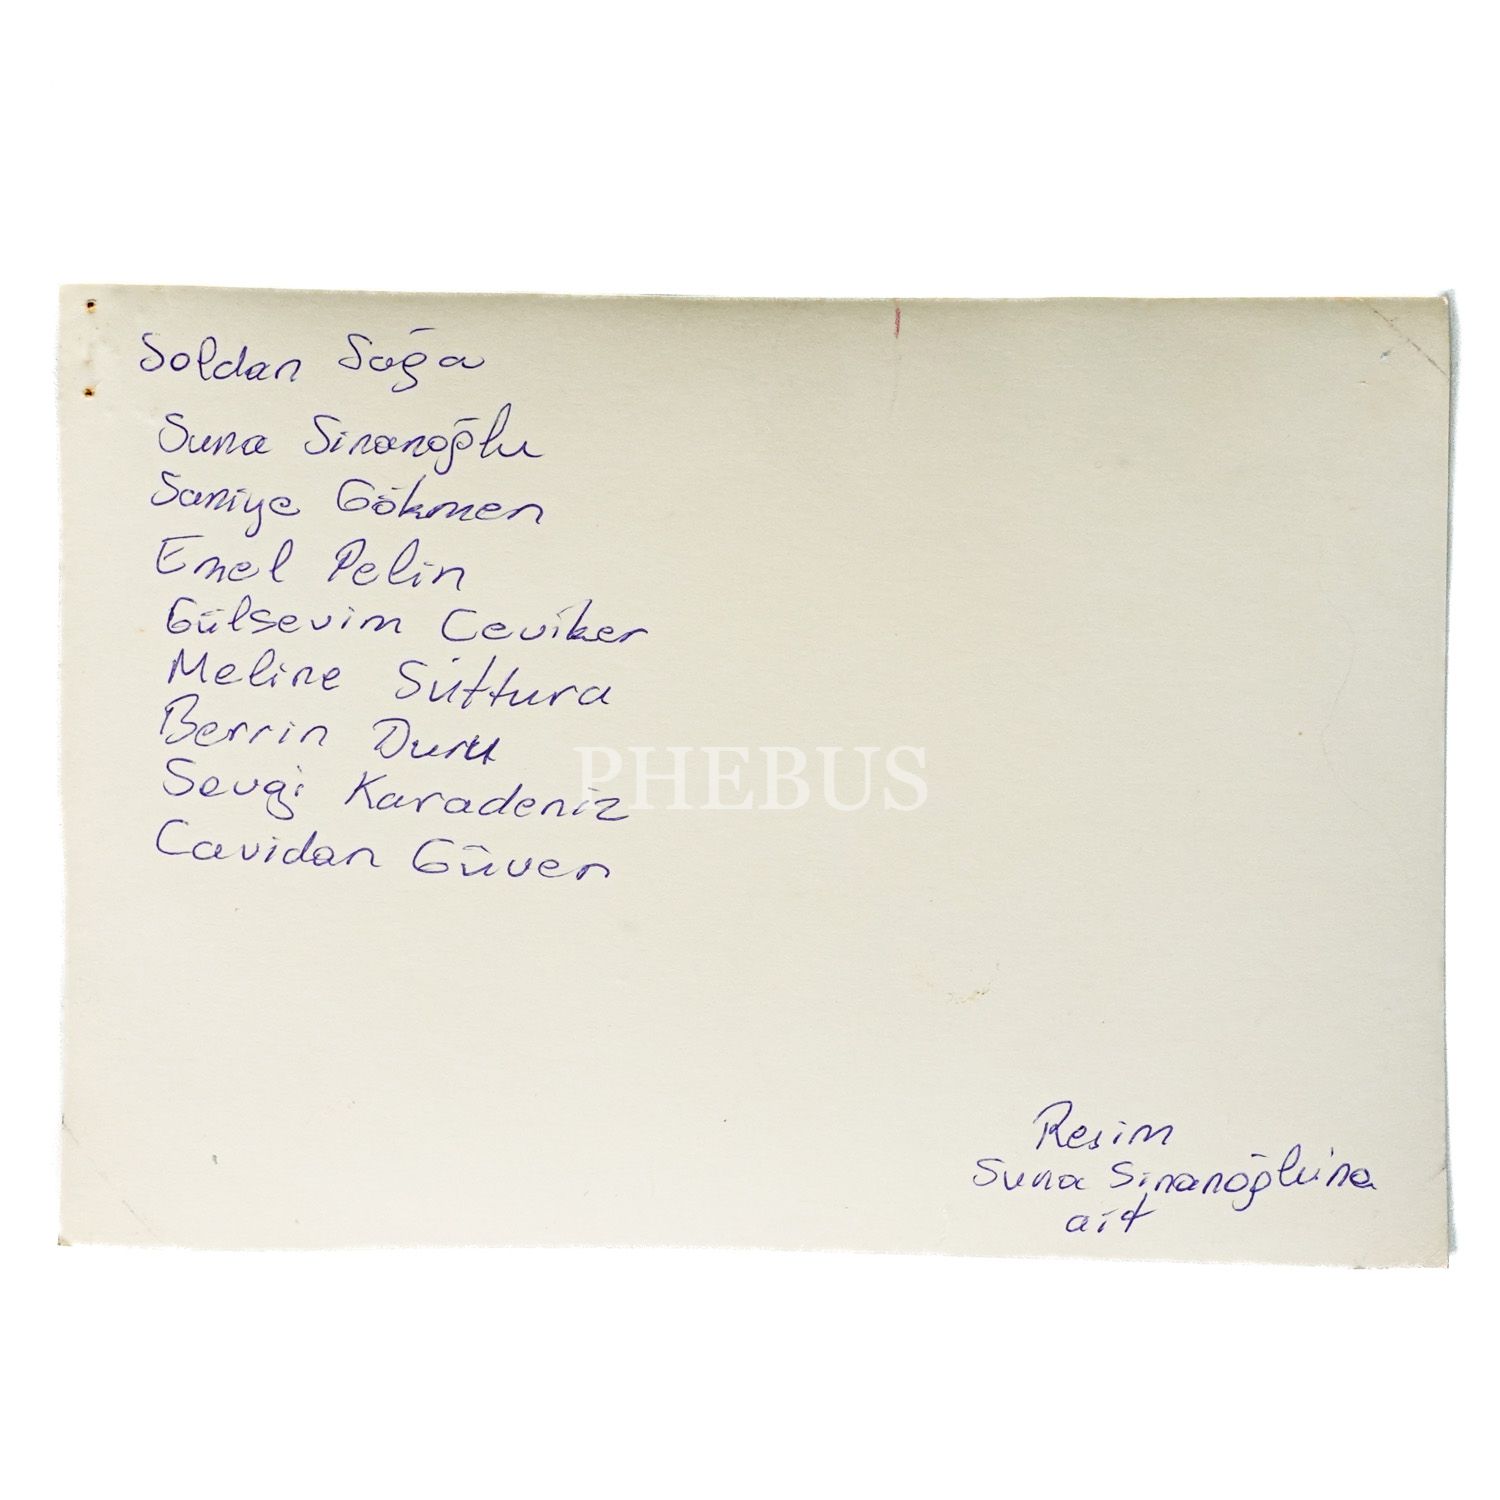 Soldan Sağa
Suna Sinanoğlu
Saniye Gökmen
Emel Pelin
Gülsevim Ceviker
Meline Süttura
Berrin Duru
Sevgi Karadeniz
Cavidan Güven
PHEBUS
Resim
Suna Sinanoğlu'na
ait